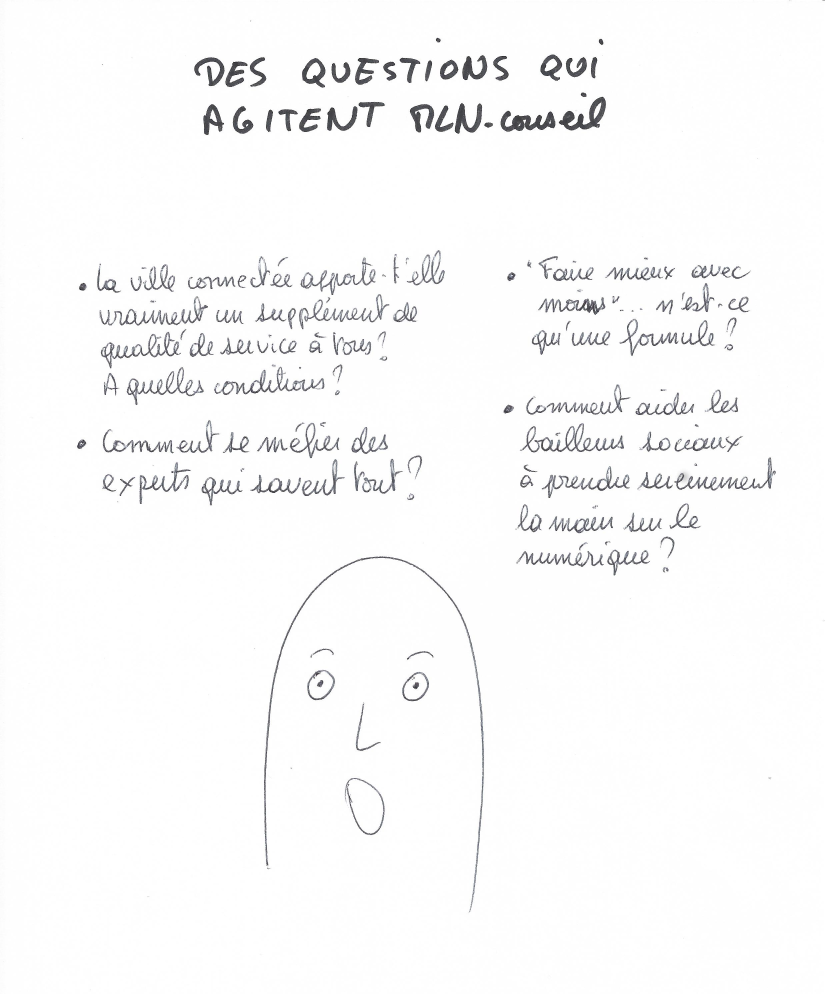 DES QUESTIONS QUI
AGITENT MLN-conseil
• La ville connectée apporte-t'elle
vraiment un supplément de
qualité de service à tous?
A quelles conditions?
• Comment se méfier des
experts qui savent tout?
• "Faire mieux avec
moins"... n'est-ce
qu'une formule?
• Comment aider les
bailleurs sociaux
à prendre sereinement
la main sur le
numérique?